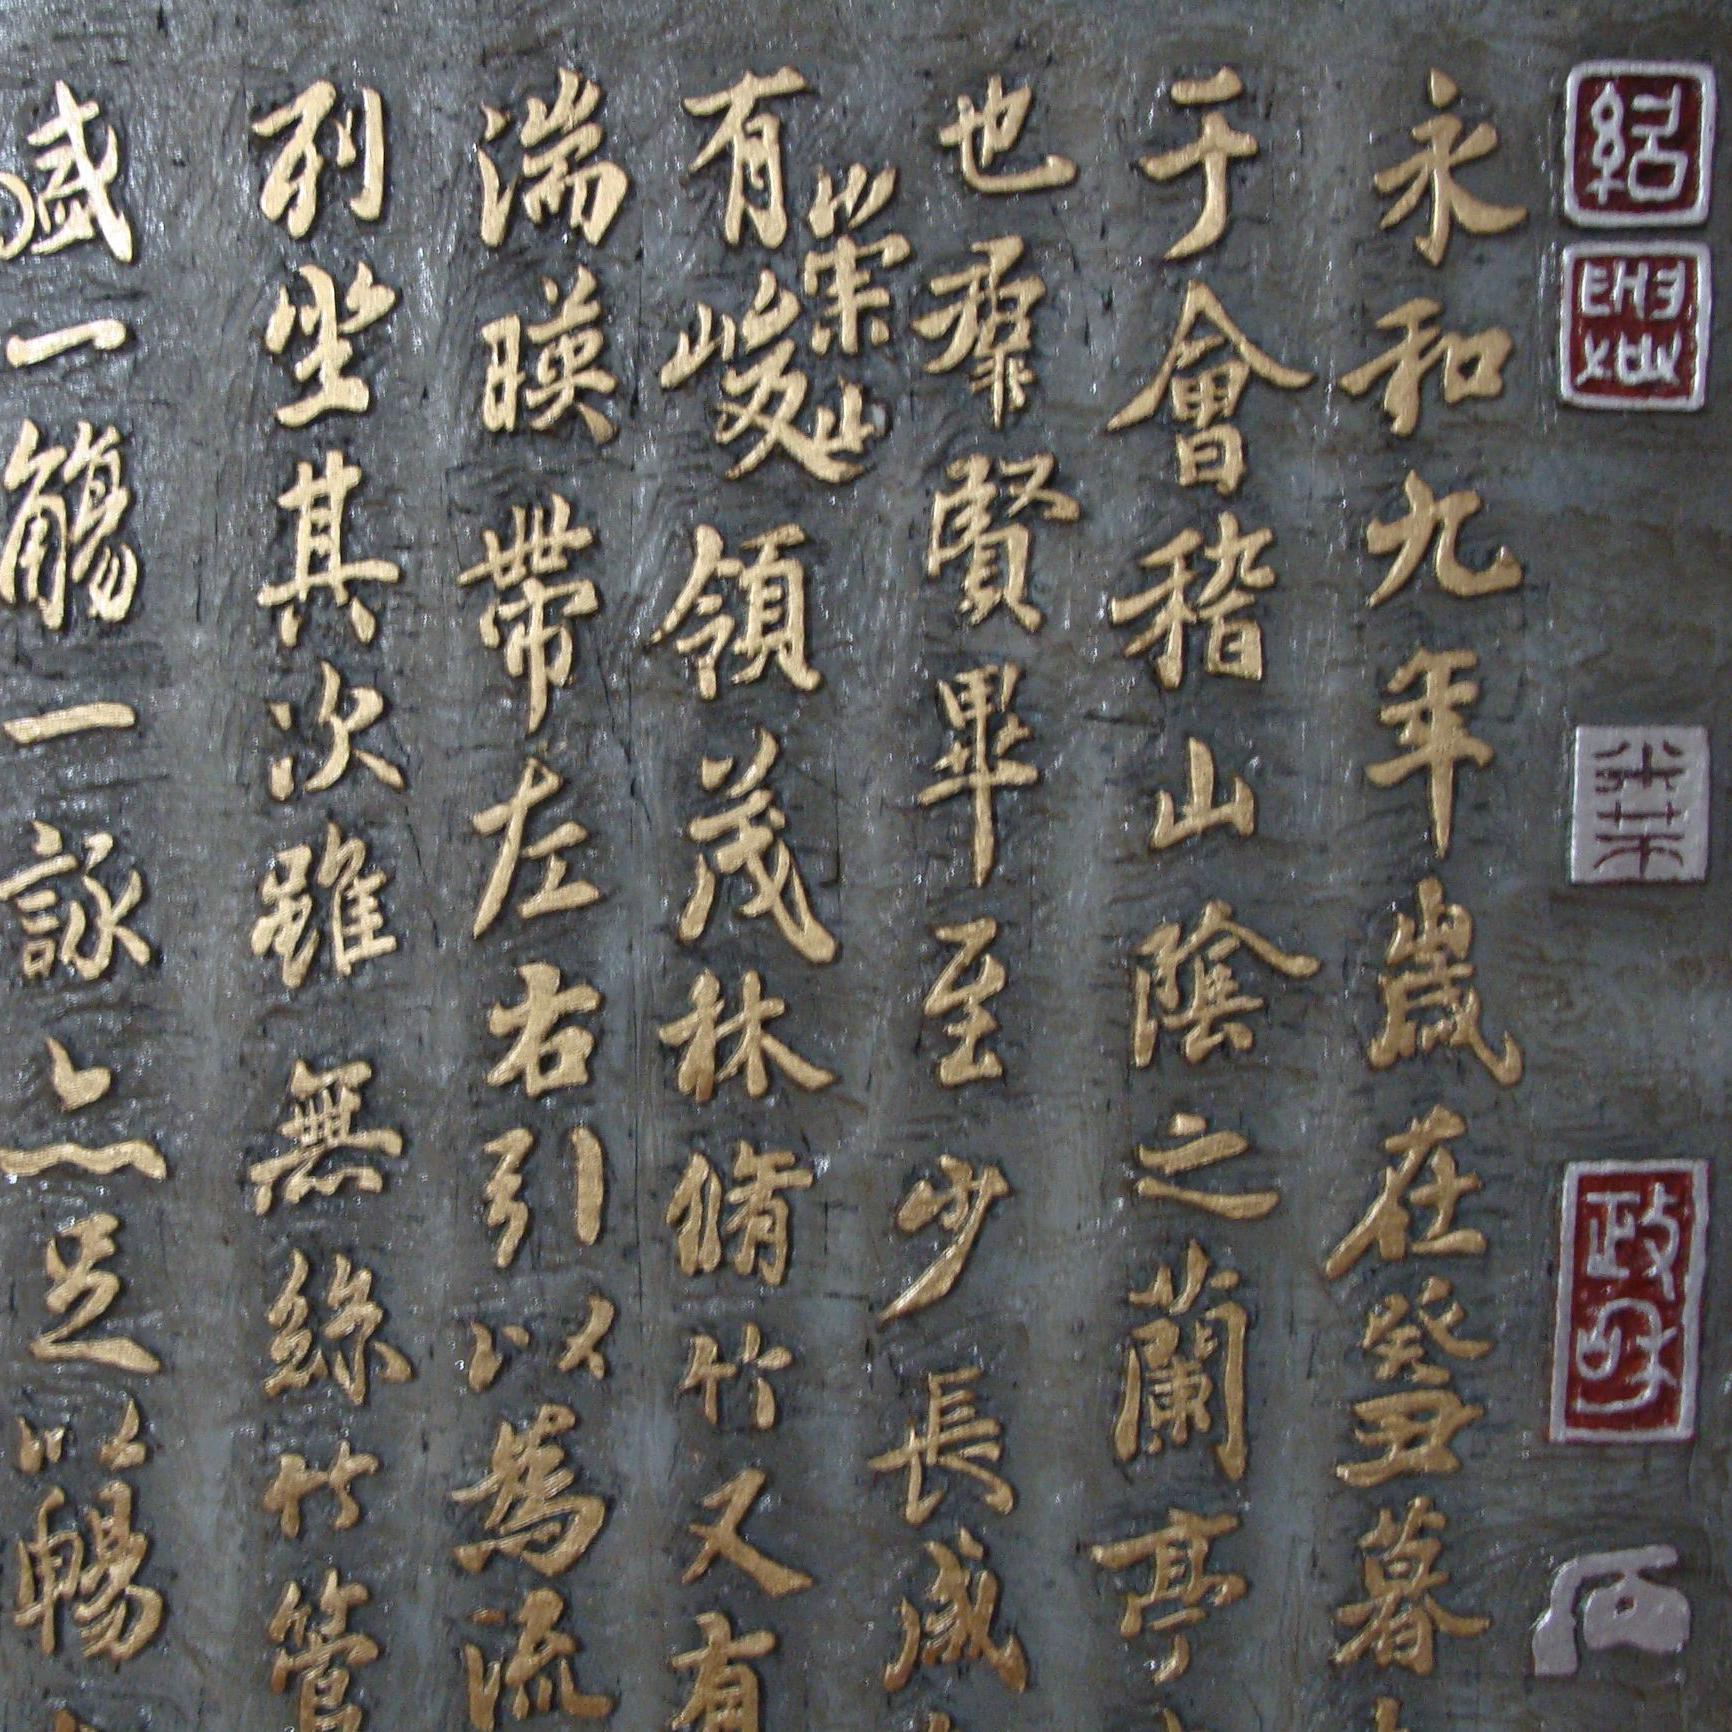 紹
興
政和
永和九年歲在癸丑暮
于會稽山陰之蘭亭
也羣賢畢至少長咸
有崇山峻領茂林脩竹又有
湍暎帶左右引以為流
列坐其次雖無絲竹管
盛一觴一詠亦足以暢